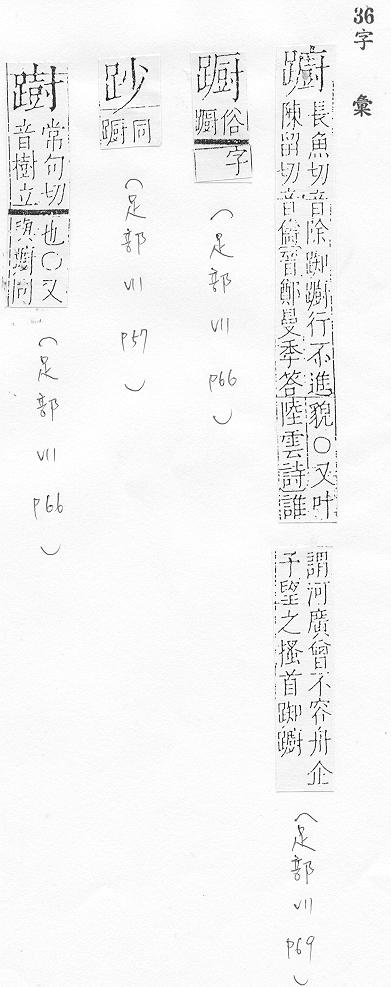 36字彙
躕
長魚切音除踟躕行不進貌○又叶
陳留切音儔晉鄭曼季答陸雲詩誰
謂河廣曾不容舟企
予望之搔首踟躕
(足部 VII P69)
蹰
俗
躕
字
(足部 VII P66)
𨁏
同
躕
(足部 VII P57)
𨄔
常句切
音樹立
也○又
與躕同
(足部 VII P66)